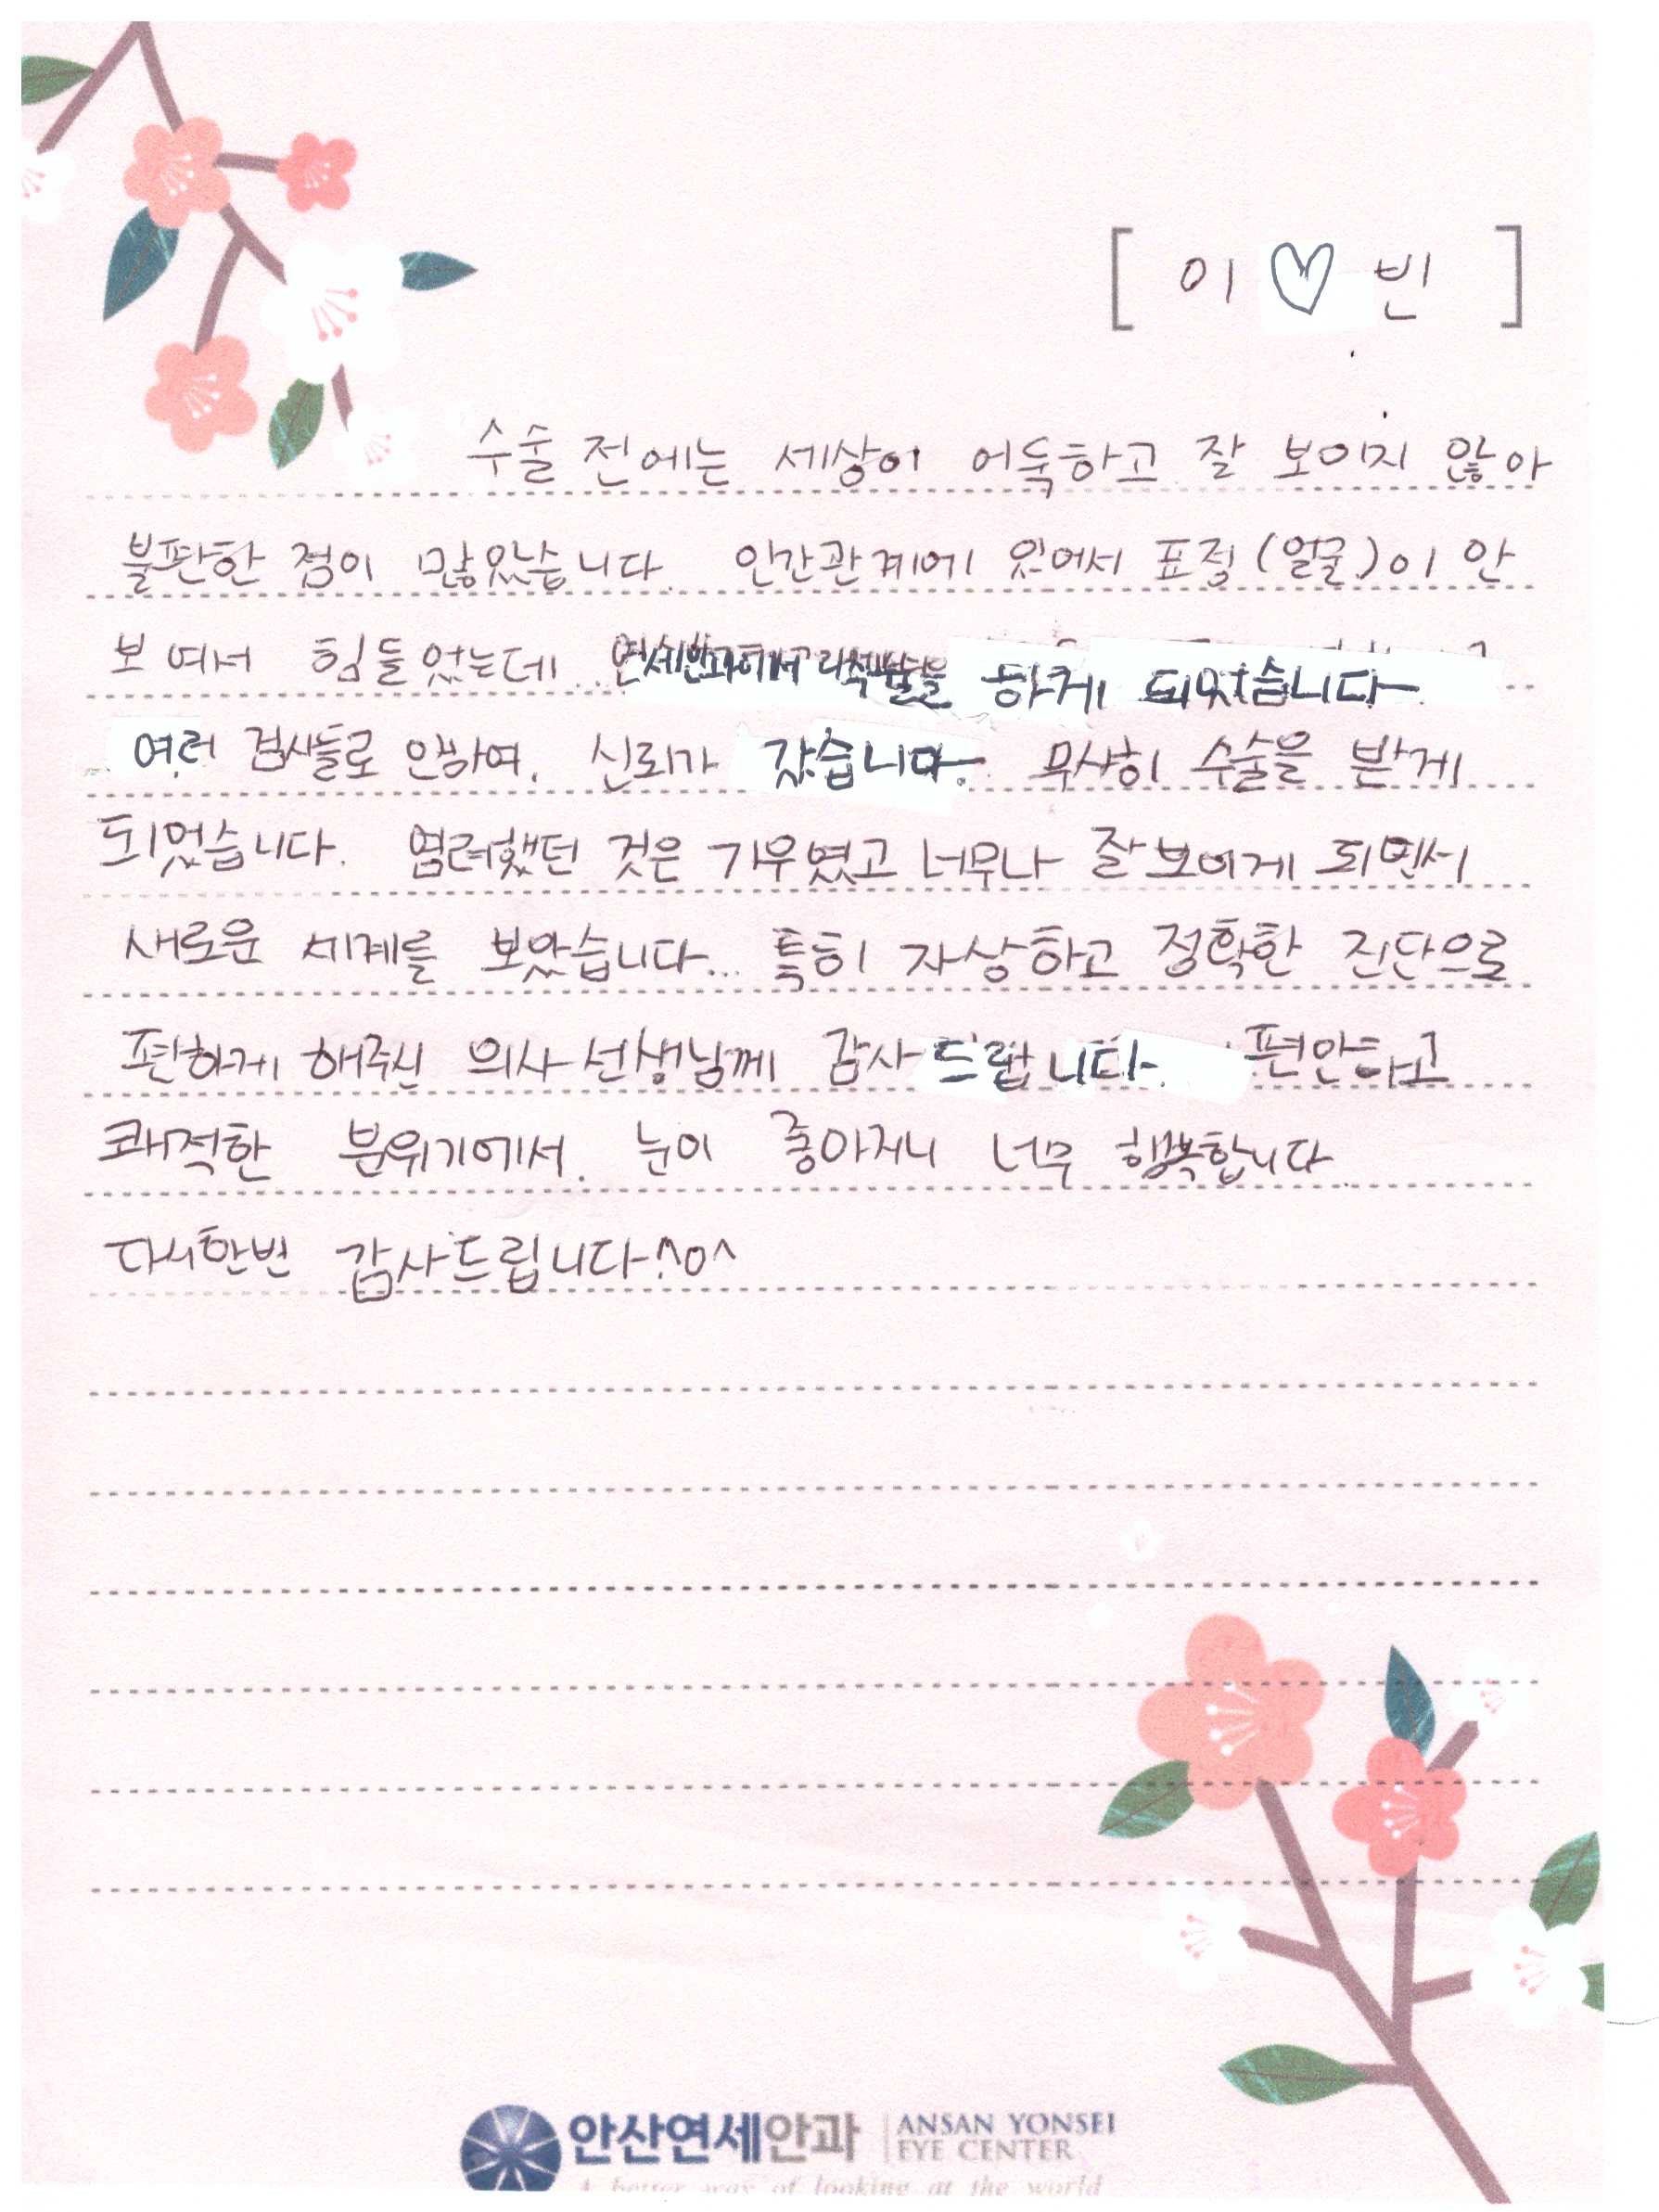 [ 이 ♡ 빈 ]
수술 전에는 세상이 어둑하고 잘 보이지 않아
불편한 점이 많았습니다. 인간관계에 있어서 표정(얼굴)이 안
보여서 힘들었는데 연세안과에서 라섹수술을 하게 되었습니다.
여러 검사들로 인하여. 신뢰가 갔습니다. 무사히 수술을 받게
되었습니다. 염려했던 것은 기우였고 너무나 잘보이게 되면서
새로운 세계를 보았습니다... 특히 자상하고 정확한 진단으로
편하게 해주신 의사선생님께 감사드립니다. 편안하고
쾌적한 분위기에서. 눈이 좋아지니 너무 행복합니다.
다시한번 감사드립니다^o^
안산연세안과 ANSAN YONSEI
EYE CENTER
A better way of looking at the world